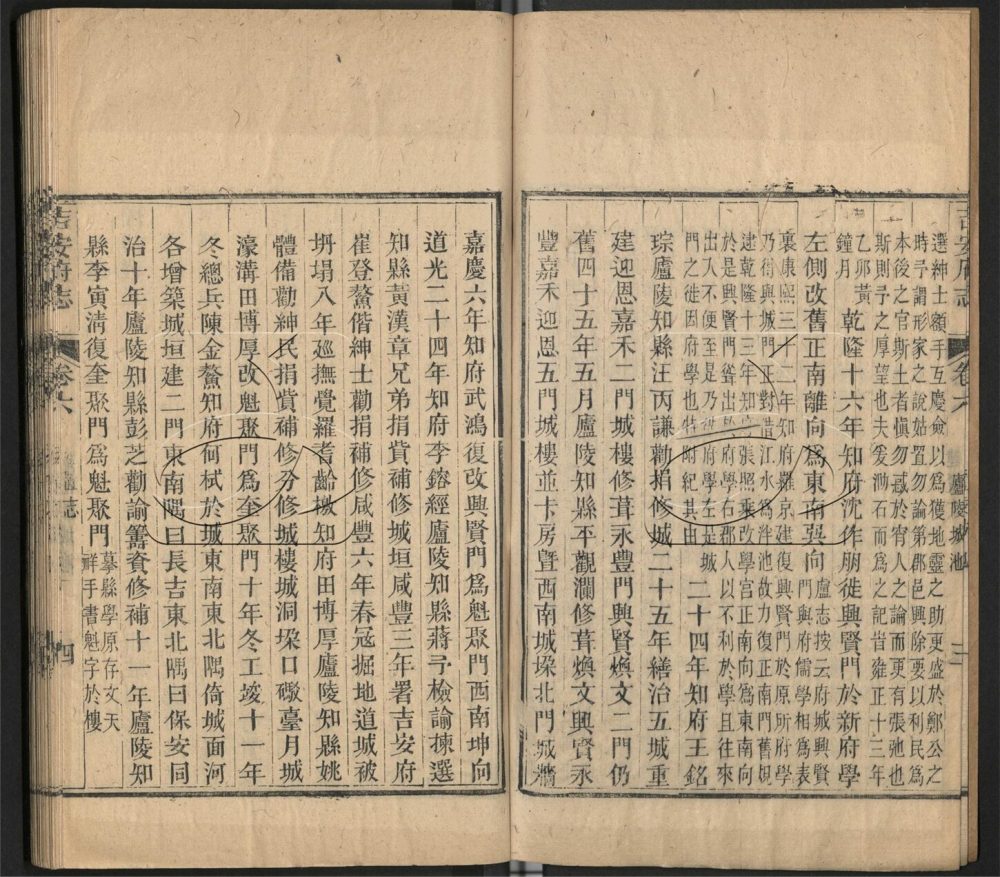 吉安府志
卷六
廬陵城池
三
選紳士額手互慶僉以為獲地靈之助更盛於鄭公之
時予謂形家之說姑置勿論第郡邑興除要以利民為
本後之官斯土者慎勿惑於宵人之論而更有張弛也
斯則予之厚望也夫爰泐石而為之記旹雍正十三年
乙卯黃
鐘月
乾隆十六年知府沈作朋徙興賢門於新府學
左側改舊正南離向為東南巽向
盧志按云府城興賢
門與府儒學相為表
裏康熙三十二年知府羅京建復興賢門於原所府學
乃得與城門正對借江水為泮池故力復正南門舊規
建乾隆十三年知
張照乘改學宮正南向為東南向
於是興賢門
府學右郡人以不利於學且往來
出入不便至是乃
府學左是城
門之徙因府學也特附紀其由
二十四年知府王銘
琮廬陵知縣汪丙謙勸捐修城二十五年繕治五城重
建迎恩嘉禾二門城樓修葺永豐門興賢煥文二門仍
舊四十五年五月廬陵知縣平觀瀾修葺煥文興賢永
豐嘉禾迎恩五門城樓並卡房暨西南城垜北門城牆
嘉慶六年知府武鴻復改興賢門為魁聚門西南坤向
道光二十四年知府李鎔經廬陵知縣蔣予檢諭揀選
知縣黃漢章兄弟捐貲補修城垣咸豐三年署吉安府
崔登鰲偕紳士勸捐補修咸豐六年春寇掘地道城被
坍塌八年廵撫覺羅耆齡檄知府田博厚廬陵知縣姚
體備勸紳民捐貲補修分修城樓城洞垜口礮臺月城
濠溝田博厚改魁聚門為奎聚門十年冬工竣十一年
冬總兵陳金鰲知府何栻於城東南東北隅倚城面河
各增築城垣建二門東南隅曰長吉東北隅曰保安同
治十年廬陵知縣彭芝勸諭籌資修補十一年廬陵知
縣李寅清復奎聚門為魁聚門
摹縣學原存文天
祥手書魁字於樓
吉安府志
卷六
四